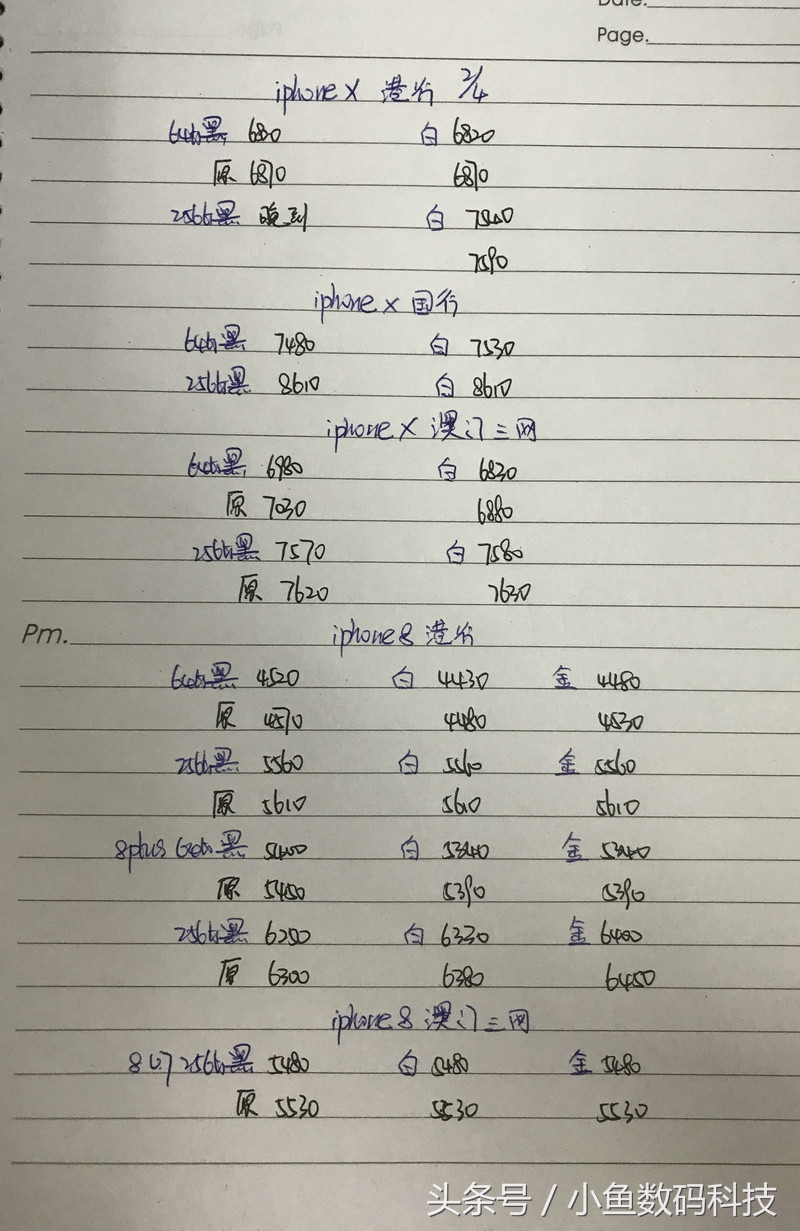 Date.
Page.
iphone X 港行 2/4
64G黑 6820 白 6820
原 6870 6870
256G黑 晚到 白 7540
7590
iphone X 国行
64G黑 7480 白 7530
256G黑 8610 白 8610
iphone X 澳门三网
64G黑 6980 白 6830
原 7030 6880
256G黑 7570 白 7580
原 7620 7630
Pm. iphone 8 港行
64G黑 4520 白 4430 金 4480
原 4570 4480 4530
256G黑 5560 白 5560 金 5560
原 5610 5610 5610
8plus 64G黑 5400 白 5340 金 5340
原 5450 5390 5390
256G黑 6250 白 6330 金 6400
原 6300 6380 6450
iphone 8 澳门三网
256G黑 5480 白 5480 金 5480
原 5530 5530 5530
头条号 / 小鱼数码科技